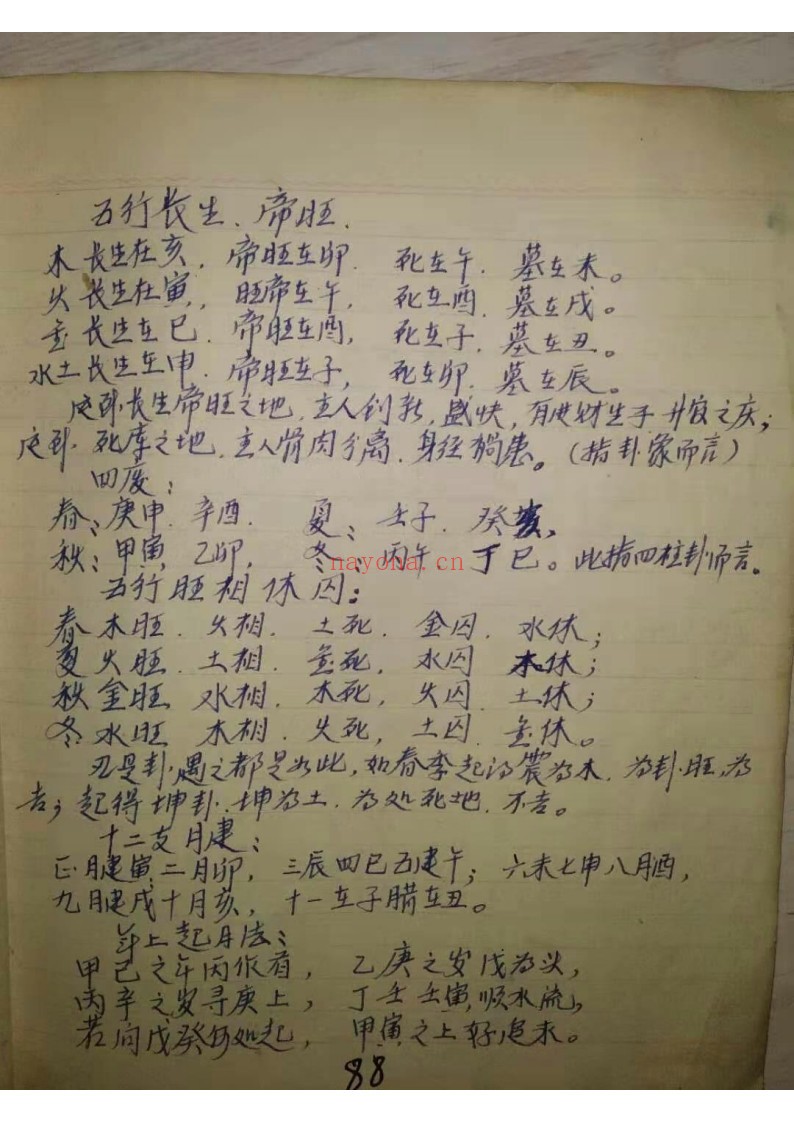 五行长生、帝旺.
木长生在亥, 帝旺在卯. 死在午. 墓在未。
火长生在寅, 旺帝在午, 死在酉. 墓在戌。
金长生在巳. 帝旺在酉, 死在子. 墓在丑。
水土长生在申. 帝旺在子, 死在卯. 墓在辰。
长生帝旺之地, 主人创新, 之庆;
死库之地, 主人骨肉分离, 身经患。(指卦家而言)
四废:
春: 庚申. 辛酉. 夏: 壬子. 癸亥,
秋: 甲寅, 乙卯, 冬: 丙午 丁巳。此指四柱卦而言。
nayona.cn
五行旺相休囚:
春木旺. 火相. 土死. 金囚. 水休;
夏火旺. 土相. 金死. 水囚 木休;
秋金旺 水相. 木死, 火囚. 土休;
冬水旺 木相. 火死, 土囚. 金休。
卦遇之都是如此, 如春季起得震为木. 为卦旺, 为
吉; 起得坤卦. 坤为土. 为处死地. 不吉。
十二支月建:
正月建寅, 二月卯, 三辰四巳五建午; 六未七申八月酉,
九月建戌十月亥, 十一在子腊在丑。
年上起月法:
甲己之年丙作首, 乙庚之岁戊为头,
丙辛之岁寻庚上, 丁壬壬寅顺水流,
若问戊癸何处起, 甲寅之上好追求。
88